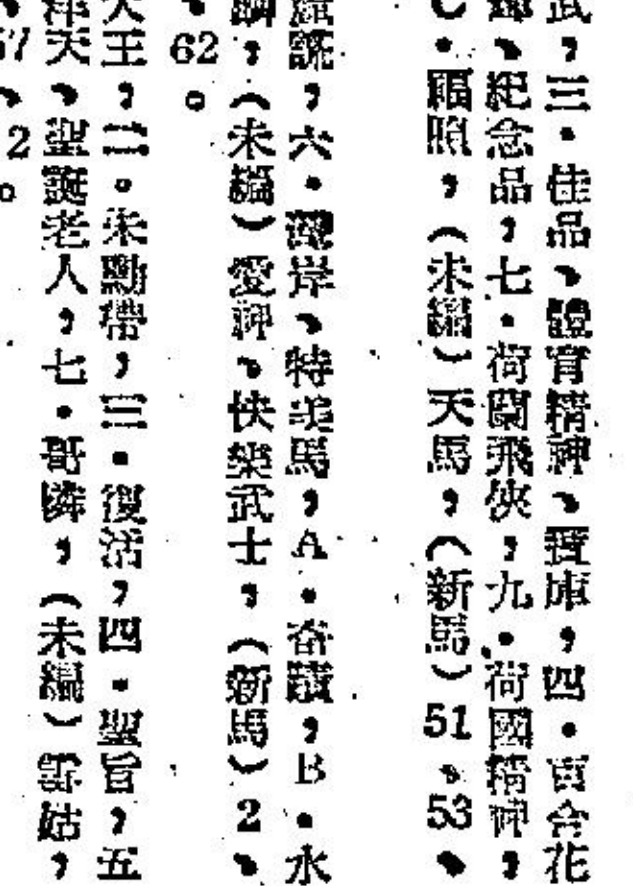 武，三．佳品、體育精神、寶庫，四．百合花
、紀念品，七．荷蘭飛俠，九．荷國精神，
C．福照，（未編）天馬，（新馬）51、53、
，六．海岸、特美馬，A．奋讀，B．水
，（未編）愛神、快樂武士，（新馬）2、
、62。
大王，二。朱勳帶，三．復活，四．聖旨，五
洋天、聖誕老人，七．哥磷，（未編）雲姑，
57、2。